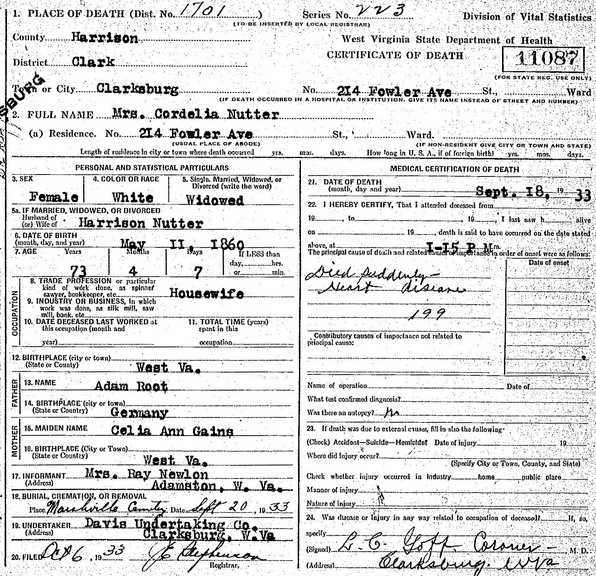 1. PLACE OF DEATH (Dist. No. 1701 ) Series No. 223 Division of Vital Statistics
(TO BE INSERTED BY LOCAL REGISTRAR)
County Harrison West Virginia State Department of Health
CERTIFICATE OF DEATH 11087
District Clark (FOR STATE REG. USE ONLY)
Town or City Clarksburg No. 214 Fowler Ave St., Ward
(IF DEATH OCCURRED IN A HOSPITAL OR INSTITUTION, GIVE ITS NAME INSTEAD OF STREET AND NUMBER)
2. FULL NAME Mrs. Cordelia Nutter
(a) Residence. No. 214 Fowler Ave St., Ward.
(USUAL PLACE OF ABODE) (IF NON-RESIDENT GIVE CITY OR TOWN AND STATE)
Length of residence in city or town where death occurred yrs. mos. days. How long in U. S. A., if of foreign birth? yrs. mos. days.
PERSONAL AND STATISTICAL PARTICULARS
3. SEX 4. COLOR OR RACE 5. Single, Married, Widowed, or Divorced (write the word)
Female White Widowed
5a. IF MARRIED, WIDOWED, OR DIVORCED
Husband of
(or) Wife of Harrison Nutter
6. DATE OF BIRTH
(month, day, and year) May 11, 1860
7. AGE Years Months Days If LESS than
day, hrs.
73 4 7 or min.
OCCUPATION
8. TRADE, PROFESSION or particular
kind of work done, as spinner
sawyer, bookkeeper, etc. Housewife
9. INDUSTRY OR BUSINESS, in which
work was done, as silk mill, saw
mill, bank, etc.
10. DATE DECEASED LAST WORKED at
this occupation (month and
year)
11. TOTAL TIME (years)
spent in this
occupation
12. BIRTHPLACE (city or town)
(State or County) West Va.
FATHER
13. NAME Adam Root
14. BIRTHPLACE (city or town)
(State or Country) Germany
MOTHER
15. MAIDEN NAME Celia Ann Gains
16. BIRTHPLACE (City or Town)
(State or Country) West Va.
17. INFORMANT Mrs. Ray Newlon
(Address) Adamston, W. Va.
18. BURIAL, CREMATION, OR REMOVAL
Place Date Sept 20, 1933
19. UNDERTAKER Davis Undertaking Co.
(Address) Clarksburg, W.Va
20. FILED Oct 6, 1933 J E Stephenson
Registrar.
MEDICAL CERTIFICATION OF DEATH
21. DATE OF DEATH
(month, day and year) Sept. 18, 1933
22. I HEREBY CERTIFY, That I attended deceased from
19 , to , 19 , I last saw h alive
on , 19 , death is said to have occurred on the date stated
above, at 1-15 P.M.
The principal cause of death and related causes of importance in order of onset were as follows:
Date of onset
Died suddenly-
Heart disease
199
Contributory causes of importance not related to
principal cause:
Name of operation Date of
What test confirmed diagnosis?
Was there an autopsy? No
23. If death was due to external causes, fill in also the following:
(Check) Accident—Suicide—Homicide? Date of injury 19
Where did injury occur?
(Specify City or Town, County, and State)
Check whether injury occurred in industry home public place
Manner of injury
Nature of injury
24. Was disease or injury in any way related to occupation of deceased? If, so,
specify
(Signed) L. C. Goff Coroner M. D.
(Address) Clarksburg. W Va